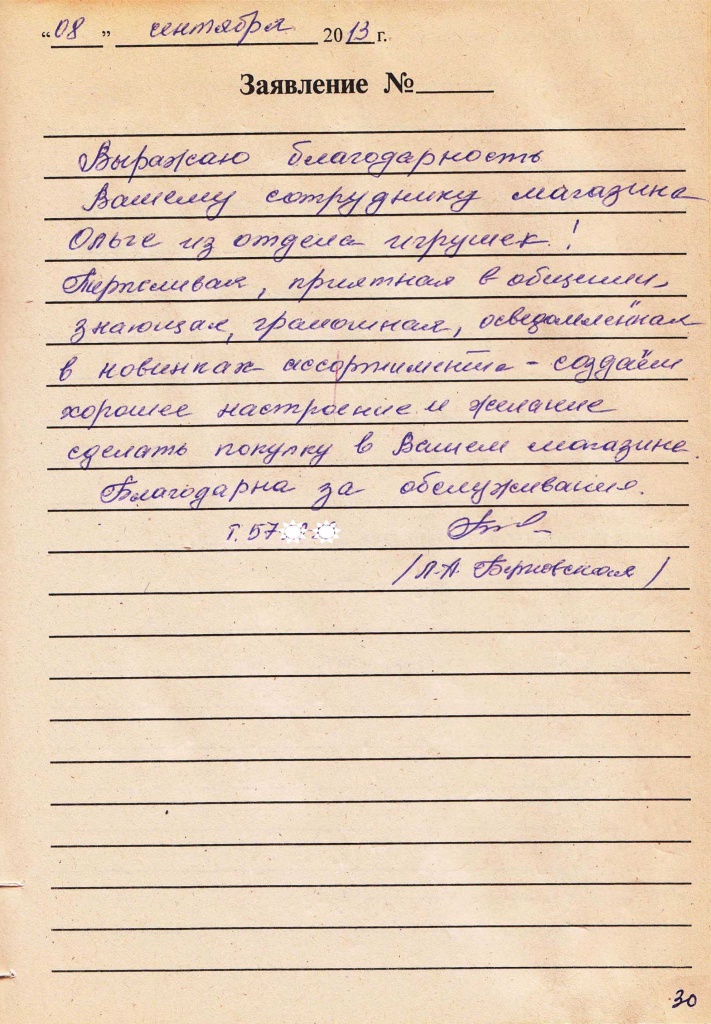 "08" сентября 2013 г.
Заявление №
Выражаю благодарность
Вашему сотруднику магазина
Ольге из отдела игрушек!
Терпеливая, приятная в общении,
знающая, грамотная, осведомлённая
в новинках ассортимента - создаёт
хорошее настроение и желание
сделать покупку в Вашем магазине
Благодарна за обслуживание.
т. 57
/Л.А. /
30